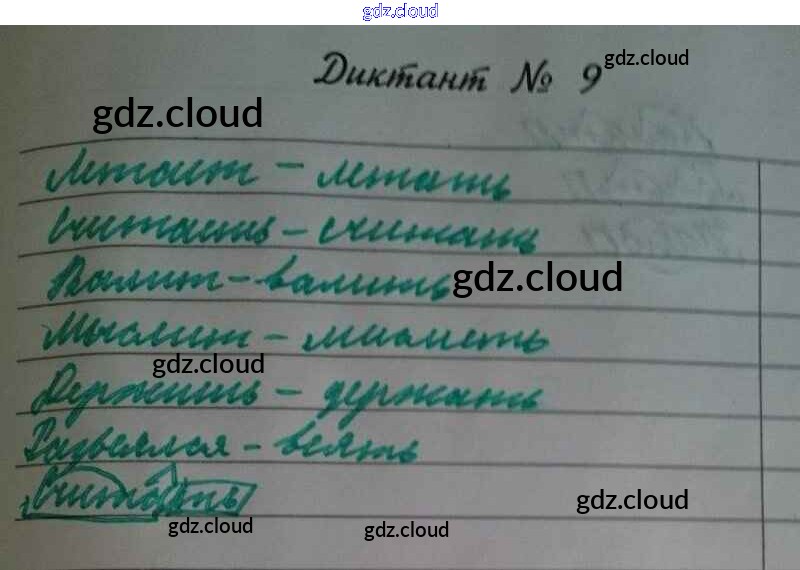 gdz.cloud
Диктант № 9
gdz.cloud
gdz.cloud
Летает – летать
Считаешь – считать
Валит – валить
gdz.cloud
Мыслит –
gdz.cloud
Держишь – держать
Развеялся – веять
Считать
gdz.cloud
gdz.cloud
gdz.cloud